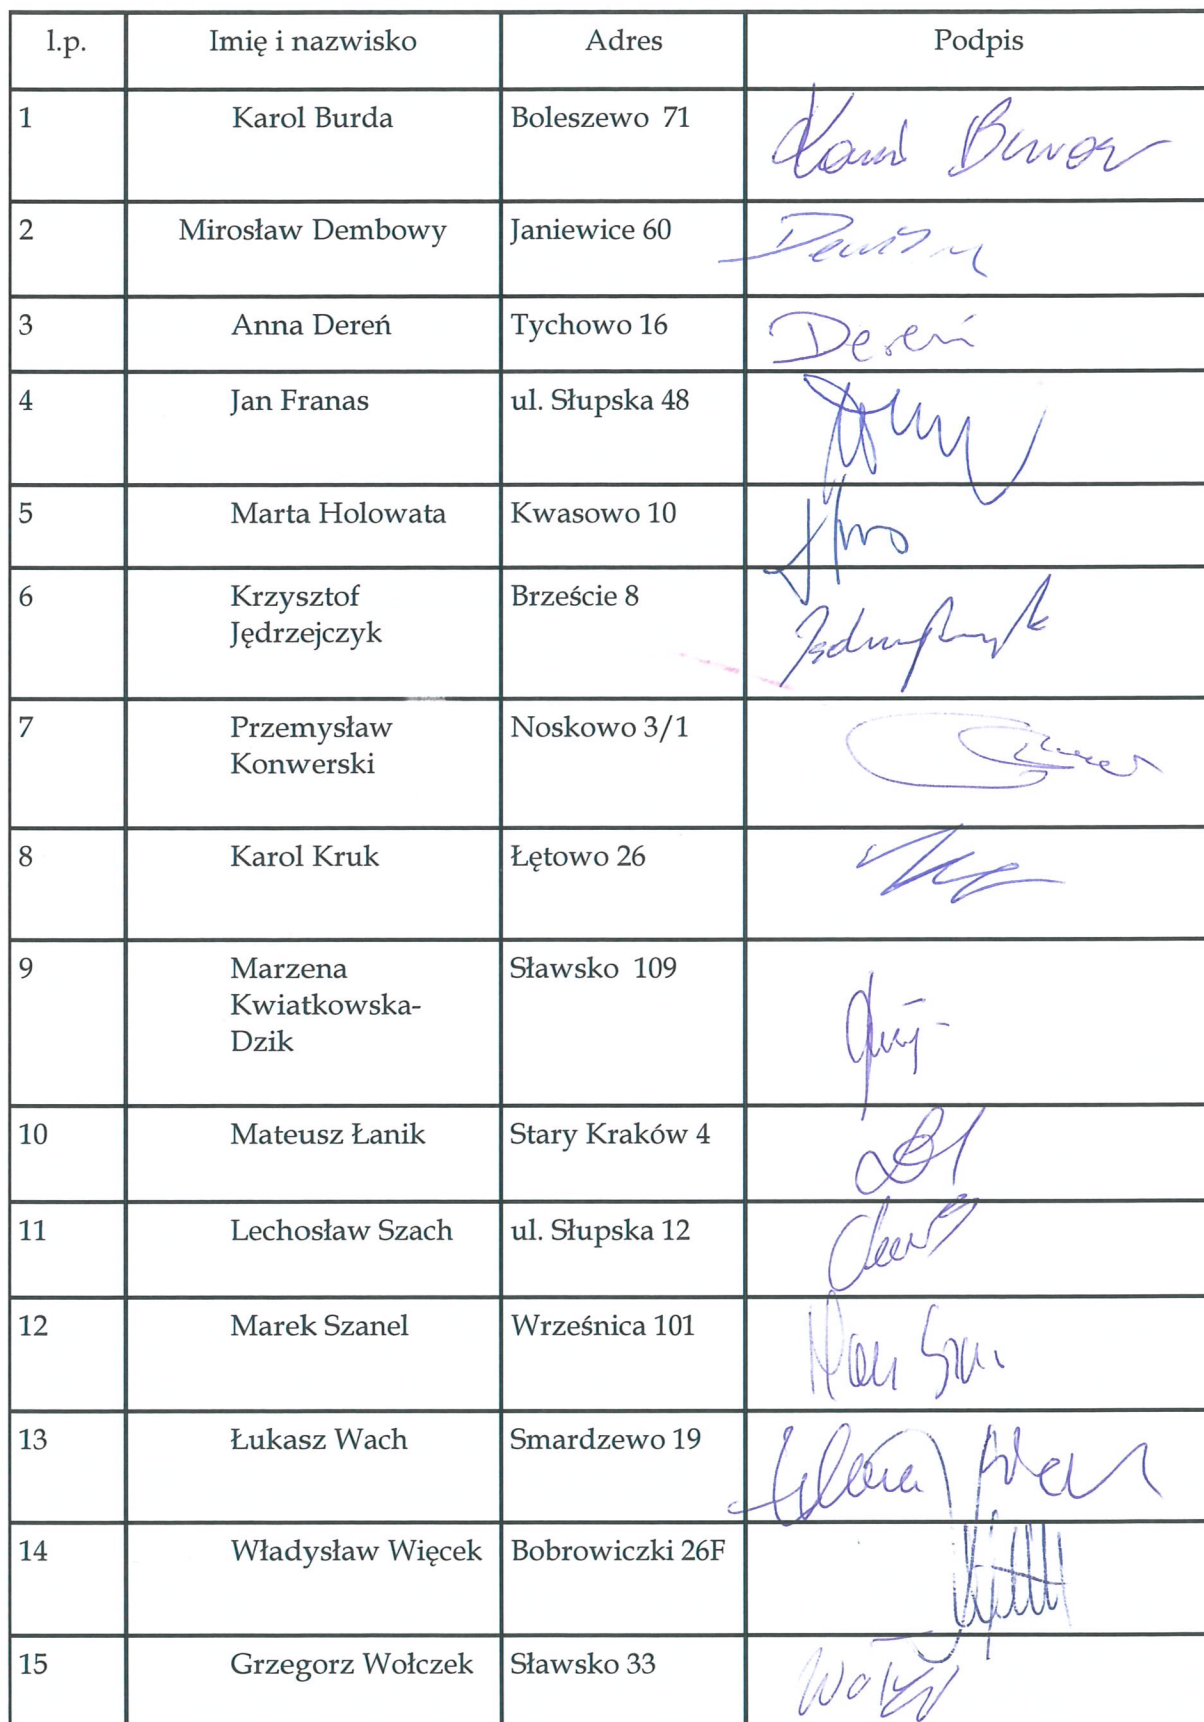 l.p. Imię i nazwisko Adres Podpis
1 Karol Burda Boleszewo 71
2 Mirosław Dembowy Janiewice 60
3 Anna Dereń Tychowo 16 Dereń
4 Jan Franas ul. Słupska 48
5 Marta Holowata Kwasowo 10
6 Krzysztof Brzeście 8
Jędrzejczyk
7 Przemysław Noskowo 3/1
Konwerski
8 Karol Kruk Łętowo 26
9 Marzena Sławsko 109
Kwiatkowska-
Dzik
10 Mateusz Łanik Stary Kraków 4
11 Lechosław Szach ul. Słupska 12
12 Marek Szanel Wrześnica 101
13 Łukasz Wach Smardzewo 19
14 Władysław Więcek Bobrowiczki 26F
15 Grzegorz Wołczek Sławsko 33